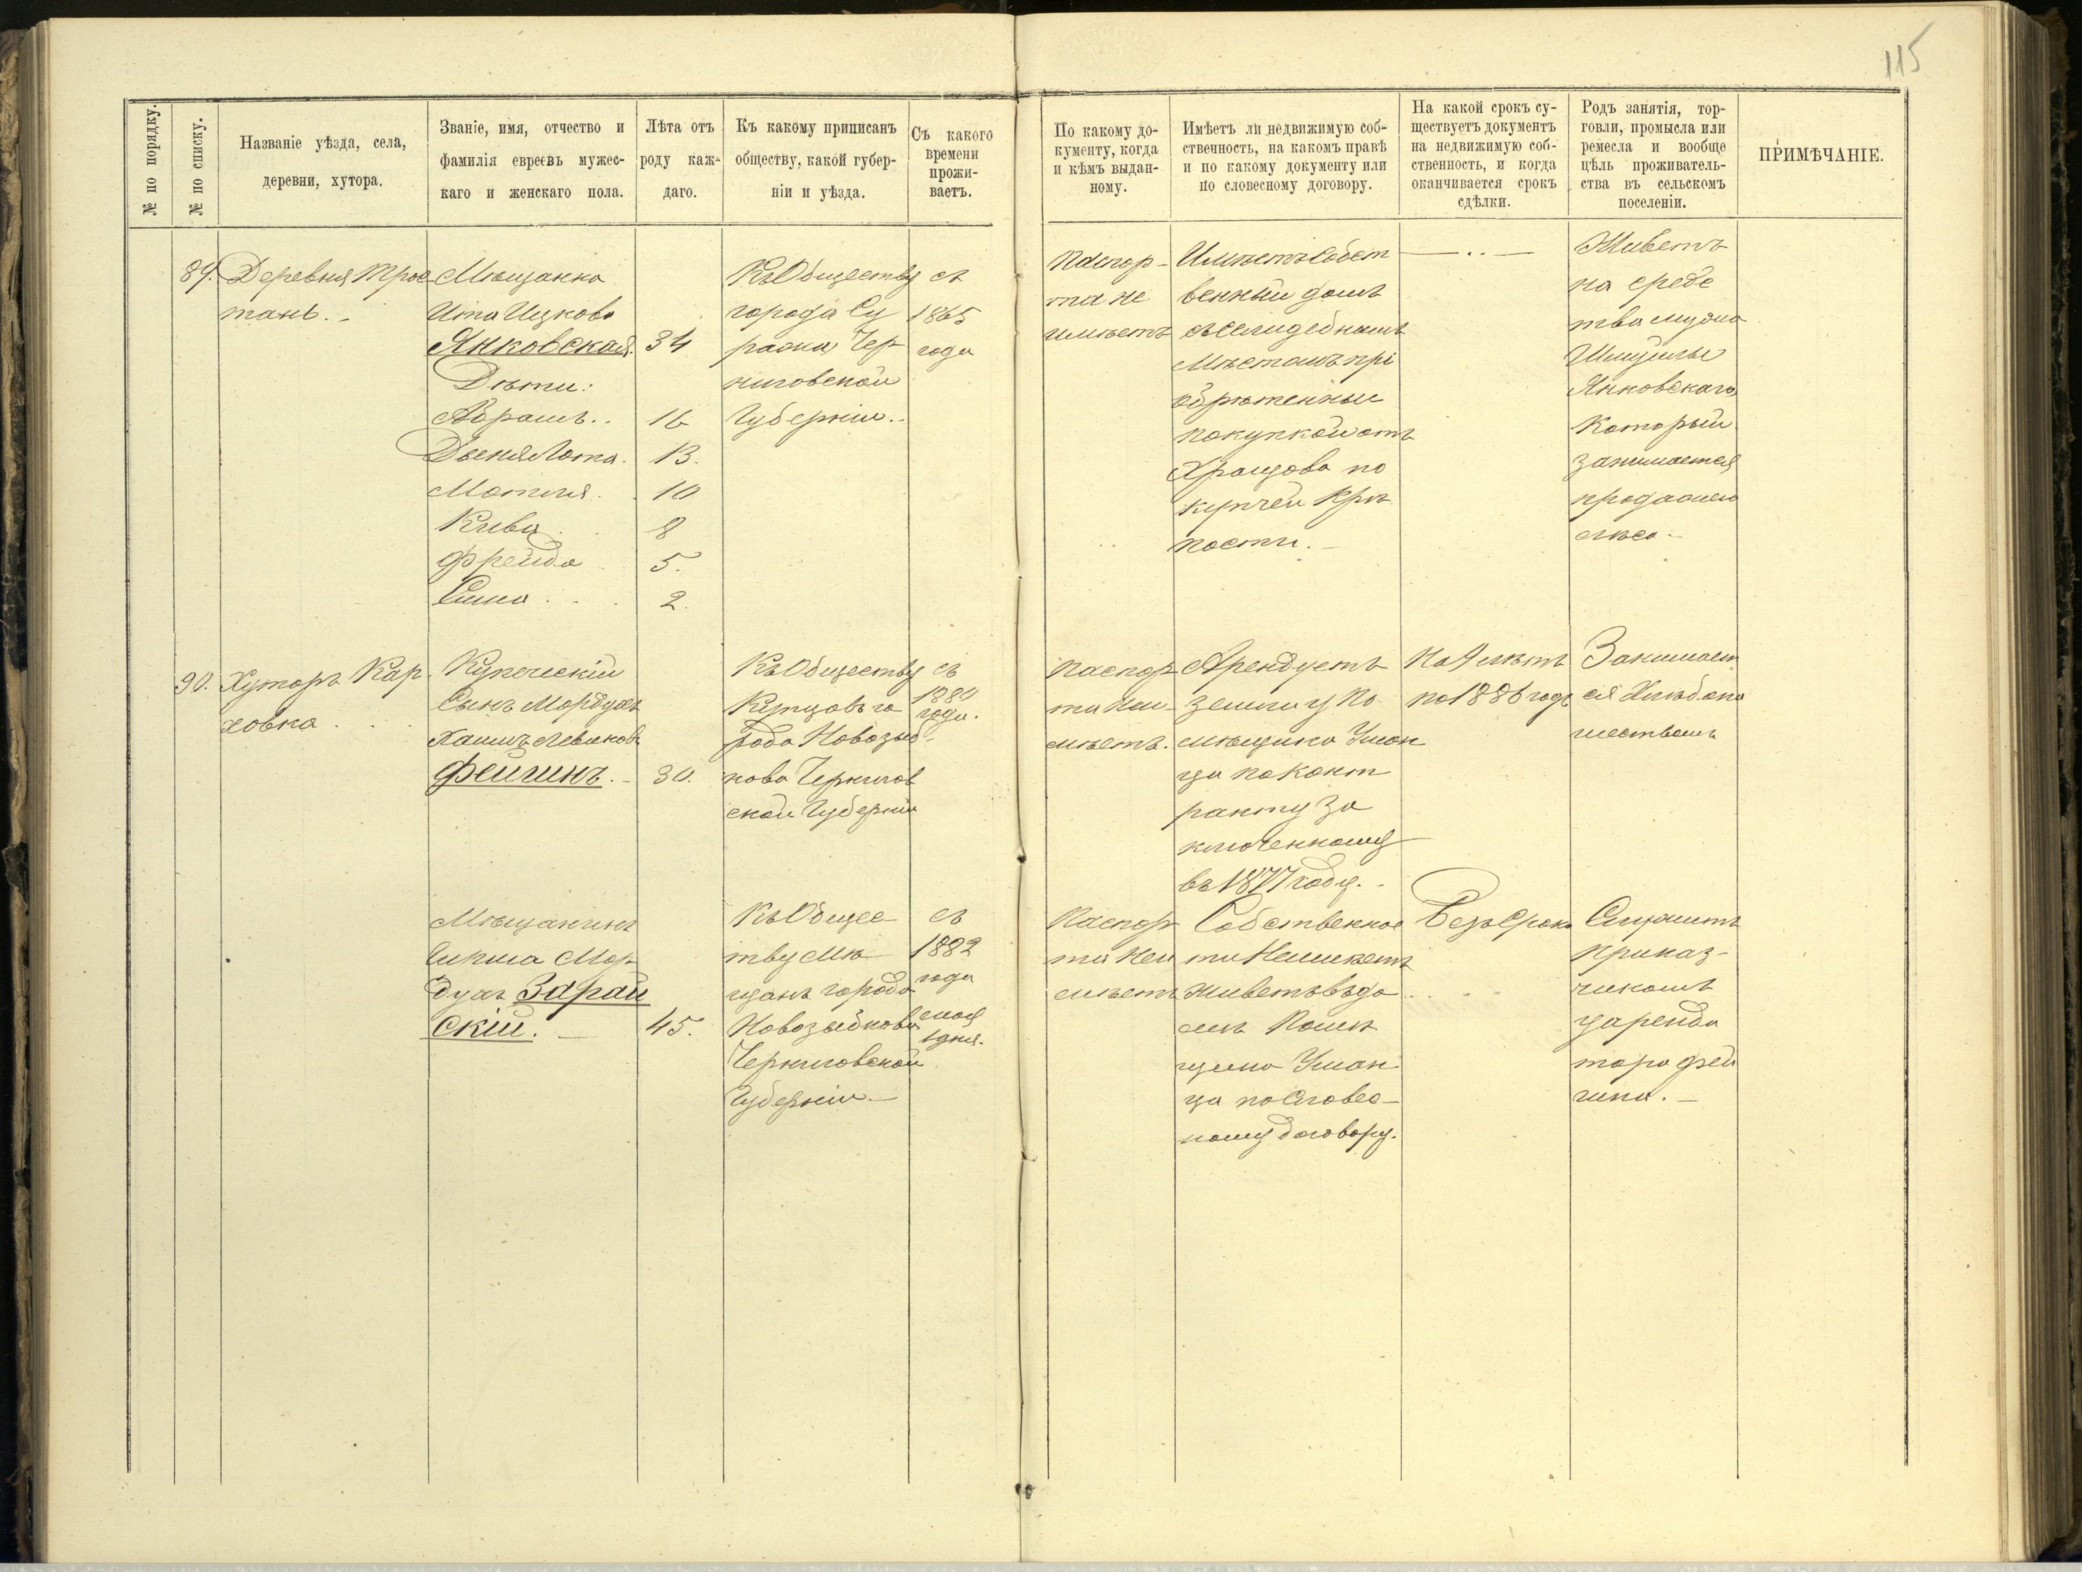 115
№ по порядку.
№ по списку.
Названіе уѣзда, села,
деревни, хутора.
Званіе, имя, отчество и
фамилія евреевъ мужес-
каго и женскаго пола.
Лѣта отъ
роду каж-
даго.
Къ какому приписанъ
обществу, какой губер-
ніи и уѣзда.
Съ какого
времени
прожи-
ваетъ.
По какому до-
кументу, когда
и кѣмъ выдан-
ному.
Имѣетъ ли недвижимую соб-
ственность, на какомъ правѣ
и по какому документу или
по словесному договору.
На какой срокъ су-
ществуетъ документъ
на недвижимую соб-
ственность, и когда
оканчивается срокъ
сдѣлки.
Родъ занятія, тор-
говли, промысла или
ремесла и вообще
цѣль проживатель-
ства въ сельскомъ
поселеніи.
ПРИМѢЧАНІЕ.
89. Деревня Трос
тань.
Мѣщанка
Ита Ицкова
Янковская. 34
Дѣти:
Абрамъ.. 16
13.
10
8
Фрейда 5.
2.
Къ Обществу
города Су
ража Чер
ниговской
Губерніи..
съ
1865
года
Паспор-
та не
имѣетъ
Имѣетъ собст
венный домъ
съ селидебнымъ
мѣстомъ прі
обрѣтенный
покупкой отъ
Хращова по
купчей Крѣ
пости.
Живетъ
на средс
тва мужа
Шмуилы
Янковскаго,
который
занимается
продажею
лѣса.
90. Хуторъ Кар
ховка
Купеческій
Сынъ Мордухъ
Хаимъ Левиковъ
Фейгинъ. 30.
Къ Обществу
Купцовъ го
рода Новозыб-
кова Чернигов
ской Губерніи
съ
1880
года.
Паспор
та неи
мѣетъ.
Арендуетъ
землю у По
мѣщика Уман
ца по конт
ракту за
ключенному
въ 1877 году.
На 9 лѣтъ
по 1886 годъ
Занимает
ся Хлѣбопа
шествомъ
Мѣщанинъ
Гирша Мор
духъ Зарай
скій. 45.
Къ Общес
тву Мѣ
щанъ города
Новозыбкова
Черниговской
Губерніи
съ
1882
года
мая
1 дня.
Паспор
та неи
мѣетъ
Собственнос
ти Неимѣетъ
живетъ въ до
мѣ Помѣ
щика Уман
ца по Словес-
ному договору.
Безъ Срока
Служитъ
приказ-
чикомъ
у аренда
тора Фей
гина.